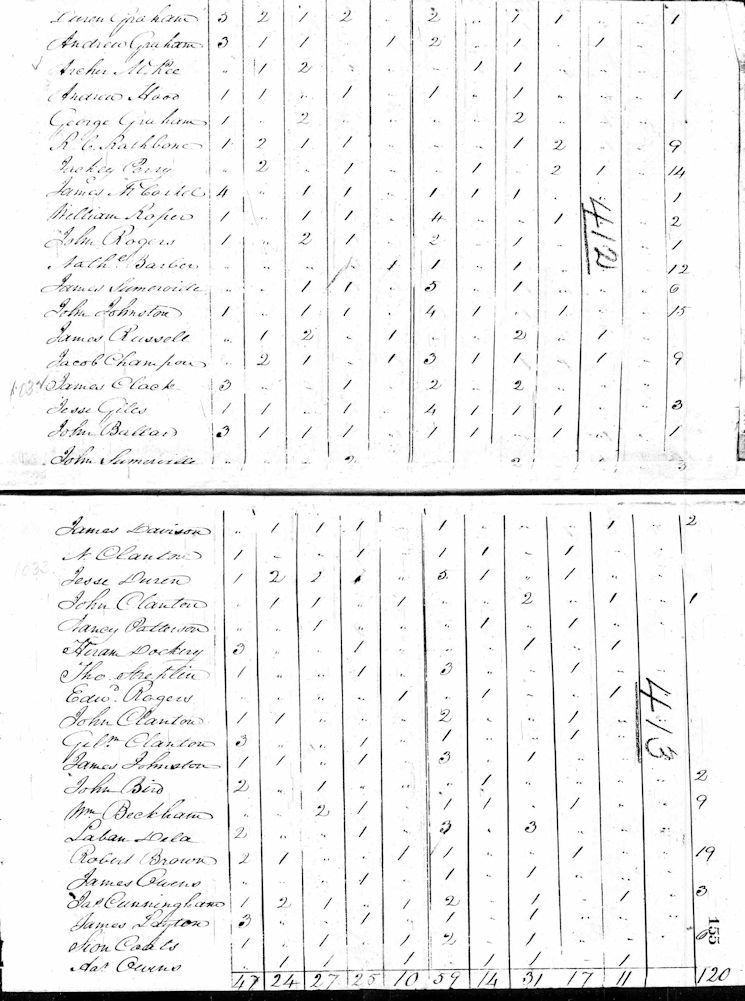 Duren Graham 3 2 1 2 .. 2 .. 1 1 .. .. 1
Andrew Graham 3 1 1 .. 1 2 .. 1 .. 1 ..
Archer McKee .. 1 2 .. .. .. 1 1 .. .. ..
Andrew Hood 1 1 .. 1 .. 1 .. 1 .. .. .. 1
George Graham 1 .. 2 .. .. .. .. 2 .. .. ..
R. C. Rathbone 1 2 1 1 .. .. .. 1 2 .. .. 9
Perry .. 2 .. 1 .. .. 1 .. 2 1 .. 14
James 4 .. 1 1 .. 1 1 1 .. .. .. 1
William Roper 1 .. 1 1 .. 4 .. .. 1 .. .. 2
John Rogers 1 .. 2 1 .. 2 .. 1 .. .. .. 1
412
Nathl Barber .. .. .. .. 1 1 .. 1 .. .. .. 12
James Sumerville .. .. 1 1 .. 5 .. 1 .. .. .. 6
John Johnston 1 .. 1 1 .. 4 1 .. 1 .. .. 15
James Russell .. 1 2 .. 1 .. .. 2 .. 1 ..
Jacob Champion .. 2 1 .. 1 3 1 1 .. 1 .. 9
James Clack 3 .. .. 1 .. 2 .. 2 .. .. ..
Jesse Giles 1 1 .. 1 .. 4 1 1 1 .. .. 3
John Ballard 3 1 1 1 .. 1 1 .. 1 .. .. 1
John Sumerville .. .. .. 2 .. .. .. 2 .. .. .. 3
James Davison .. 1 1 1 .. 1 .. .. .. 1 .. 2
N Clanton 1 .. .. 1 .. 1 1 .. 1 .. ..
Jesse Duren 1 2 2 .. .. 5 1 .. 1 .. ..
John Clanton .. 1 1 .. 1 .. .. 2 .. 1 .. 1
Nancy Patterson .. .. 1 .. .. .. 1 .. 1 .. ..
Hiram Dockery 3 .. .. 1 .. .. .. 1 .. 1 ..
Tho. 1 .. .. 1 .. 3 .. .. 1 .. ..
Edwd. Rogers .. .. .. .. 1 .. 1 .. .. 1 ..
John Clanton 1 1 .. .. .. 2 .. .. 1 .. ..
413
Gilm Clanton 3 .. .. 1 .. 1 .. .. 1 .. ..
James Johnston 1 1 .. 1 .. 3 .. 1 .. .. ..
John Bird 2 .. 1 .. .. .. 1 .. .. .. .. 2
Wm Beckham .. .. 2 1 .. 1 1 .. 1 .. .. 9
Laban 2 .. .. 1 .. 3 .. 3 .. .. ..
Robert Brown 2 1 .. .. 1 1 .. .. 1 .. .. 19
James Owens .. .. .. 1 .. 1 .. 1 .. .. ..
Jas Cunningham 1 2 1 .. 1 2 .. 1 .. 1 .. 3
James Layton 3 .. .. 1 .. 1 .. 1 .. .. ..
Sion Coats 1 .. 1 .. 1 2 .. 1 .. .. .. 6
155
Owens .. 1 1 .. 1 .. 1 1 1 1
47 24 27 25 10 59 14 31 17 11 120